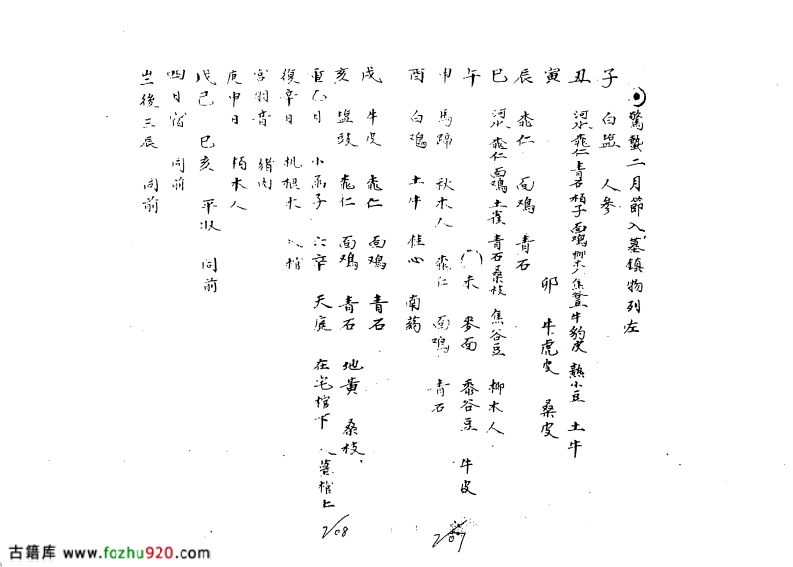 驚蟄二月節入墓鎮物列左
子 白盐 人參
丑 河水 桃仁 青石 栢子 面鳮 柳木人 牛豹皮 熟小豆 土牛
寅 卯 牛虎皮 桑皮
辰 桃仁 面鳮 青石
巳 河水 桃仁 面鳮 土雀 青石 桑枝 焦谷豆 柳木人
午 未 麥面 黍谷豆 牛皮
申 馬蹄 秋木人 桃仁 面鳮 青石
酉 白鳮 土牛 桂心 南药
戌 牛皮 桃仁 面鳮 青石
亥 盐豉 桃仁 面鳮 青石 地黄 桑枝
重 日 小函子 六 天庭 在宅棺下 入墓棺上
復辛日 桃根木 入棺
宮羽音 猪肉
庚申日 栢木人
戊己 巳亥 平收 同前
四日宿 同前
後三辰 同前
2/07
2/08
古籍库 www.fozhu920.com